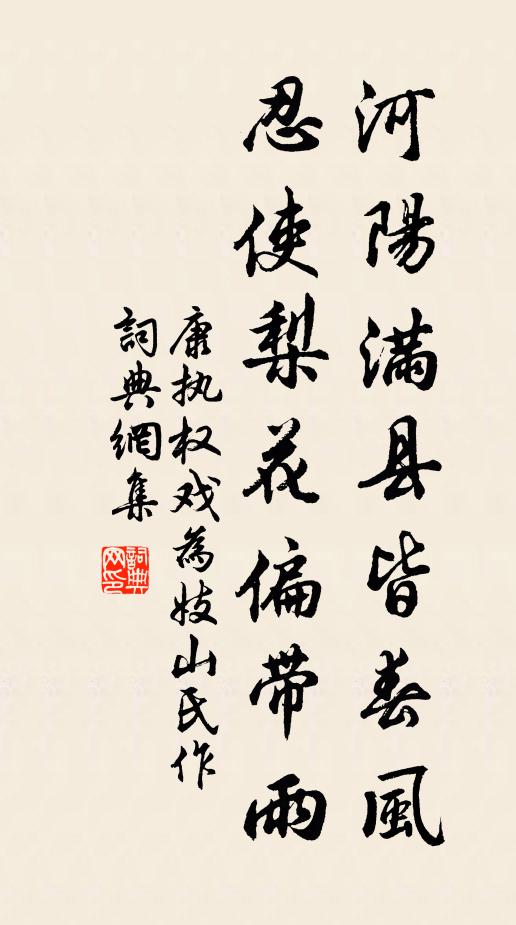 河陽滿县皆春風
忍使梨花偏带雨
康执权戏為妓山氏作
詞典網集
詞典網印